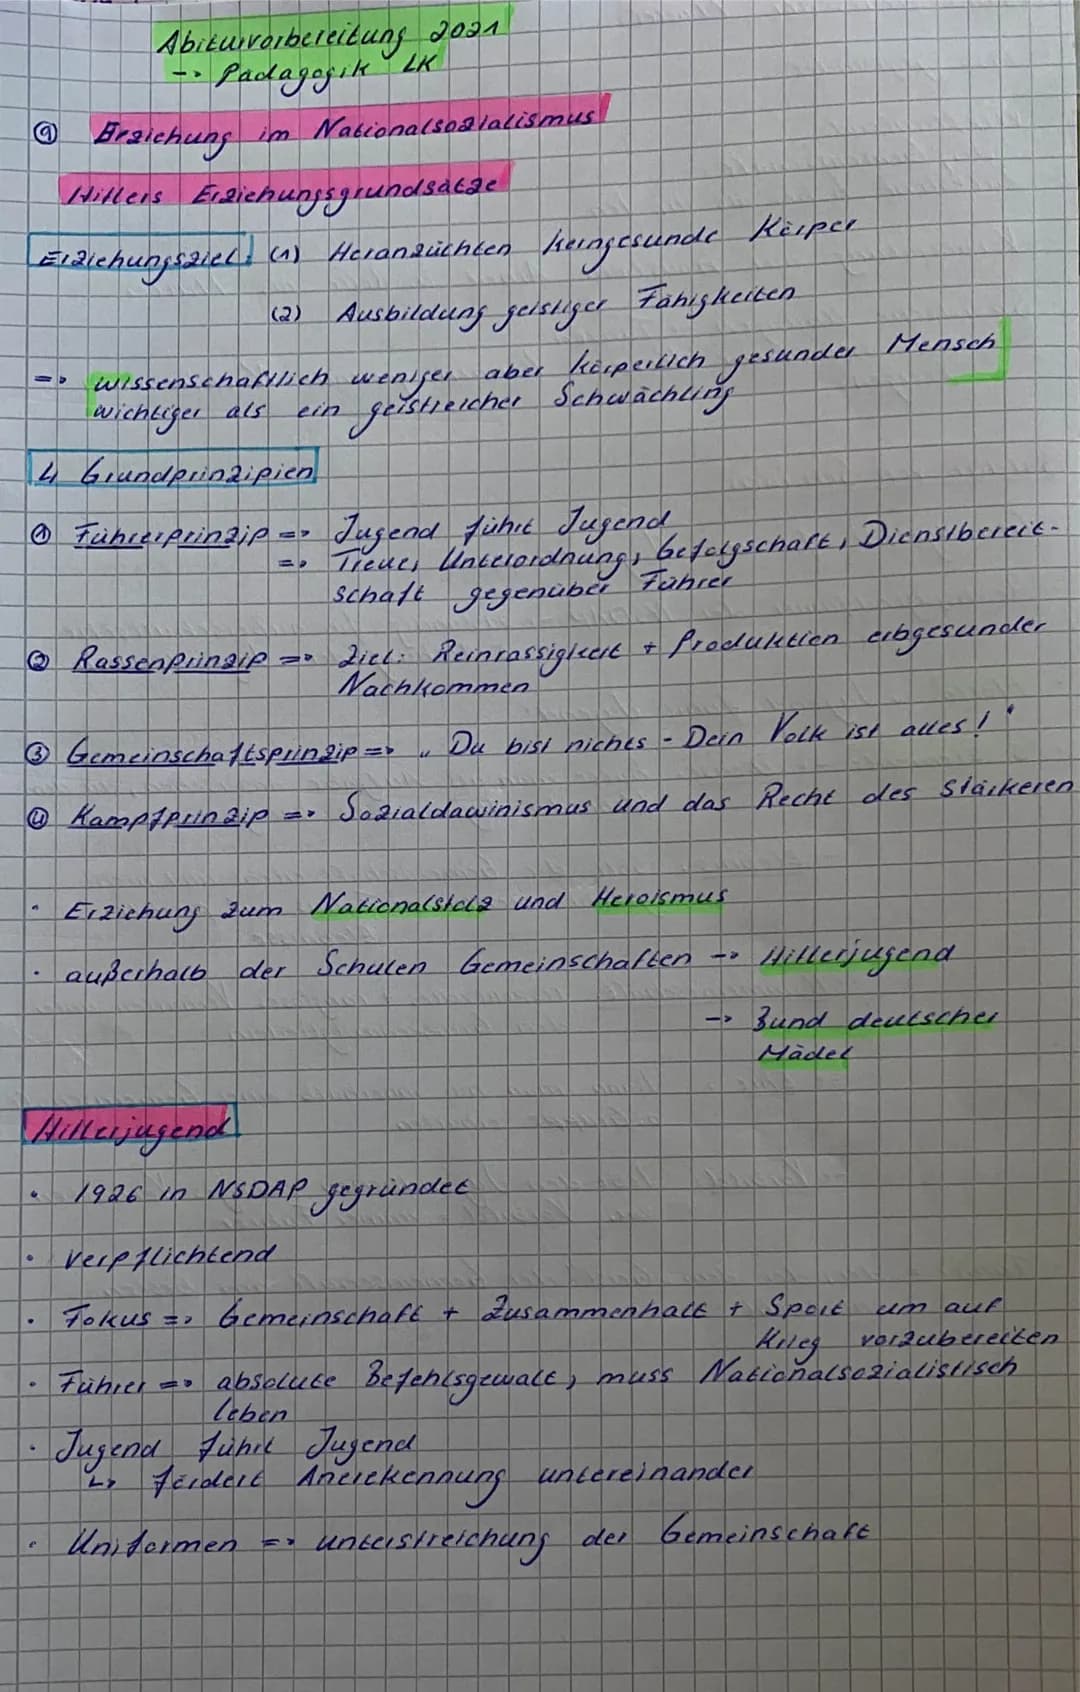 Abiturvorbereitung 2021
-> Pädagogik LK
⑨ Erziehung im Nationalsozialismus
Hitlers Erziehungsgrundsätze
Erziehungsziel: (1) Heranzüchten kerngesunde Körper
(2) Ausbildung geistiger Fähigkeiten
=> wissenschaftlich weniger aber körperlich gesunder Mensch
wichtiger als ein geistreicher Schwächling
4 Grundprinzipien
① Führerprinzip => Jugend führt Jugend
=> Treue, Unterordnung, Gefolgschaft, Dienstbereit-
schaft gegenüber Führer
② Rassenprinzip => Ziel: Reinrassigkeit + Produktion erbgesunder
Nachkommen
③ Gemeinschaftsprinzip => „Du bist nichts - Dein Volk ist alles!"
④ Kampfprinzip => Sozialdawinismus und das Recht des Stärkeren
• Erziehung zum Nationalstolz und Heroismus
• außerhalb der Schulen Gemeinschaften -> Hitlerjugend
-> Bund deutscher
Mädel
Hitlerjugend
• 1926 in NSDAP gegründet
• verpflichtend
• Fokus => Gemeinschaft + Zusammenhalt + Sport um auf
Krieg vorzubereiten
• Führer => absolute Befehlsgewalt, muss Nationalsozialistisch
leben
• Jugend führt Jugend
↳ fördert Anerekennung untereinander
• Uniformen => unterstreichung der Gemeinschaft